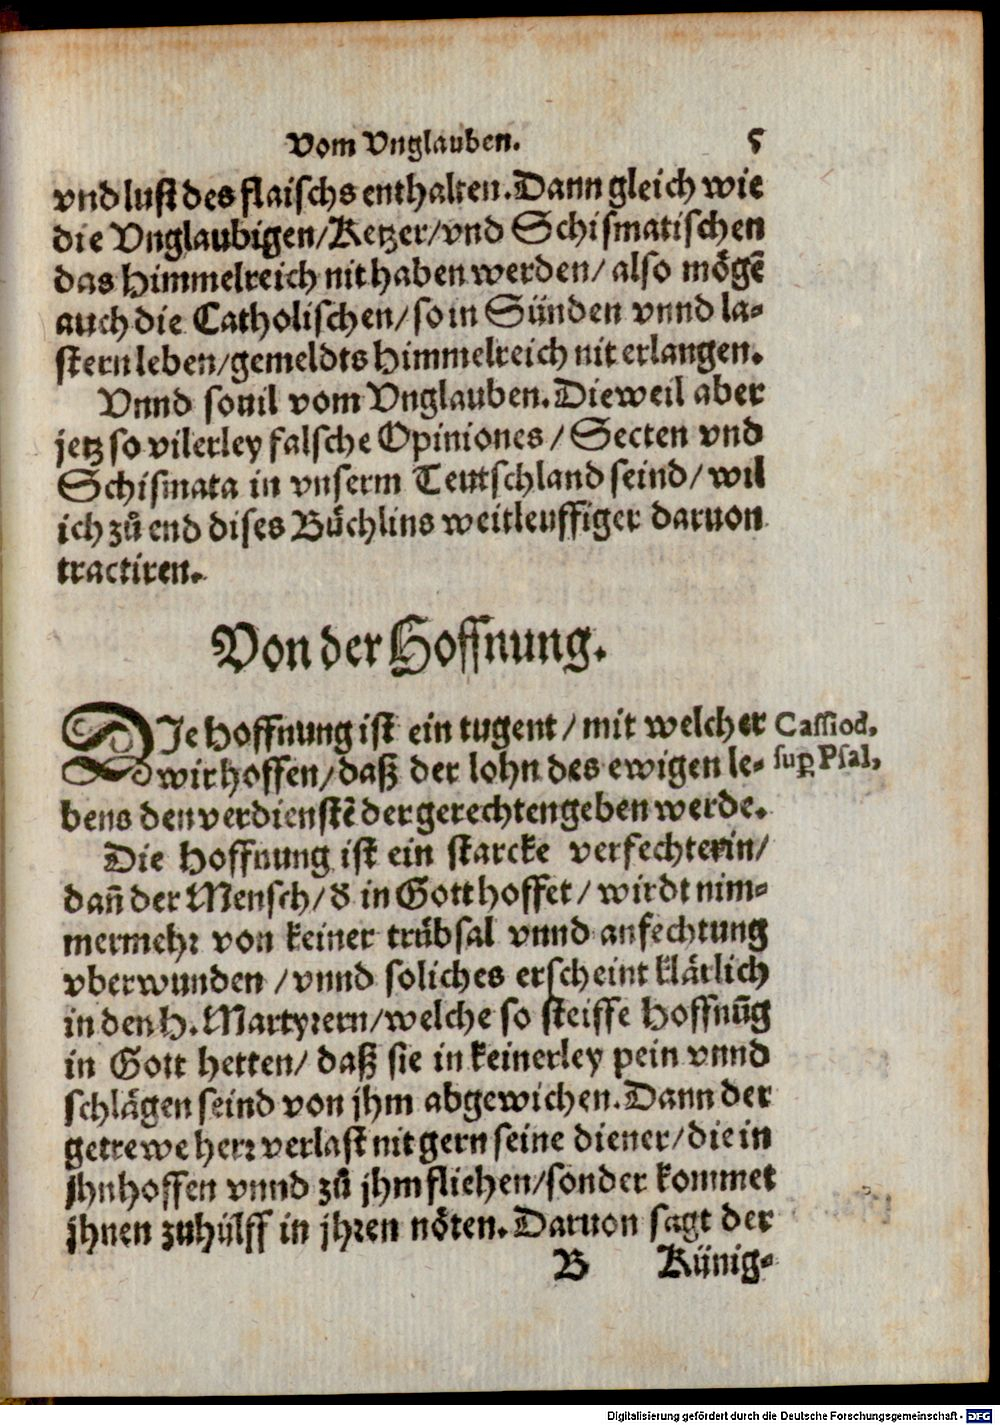 Vom Vnglauben. 5
vnd lust des flaischs enthalten. Dann gleich wie
die Vnglaubigen/Ketzer/vnd Schismatischen
das Himmelreich nit haben werden/ also mögẽ
auch die Catholischen/ so in Sünden vnnd la-
stern leben/gemeldts Himmelreich nit erlangen.
Vnnd souil vom Vnglauben. Dieweil aber
jetz so vilerley falsche Opiniones/ Secten vnd
Schismata in vnserm Teutschland seind/ wil
ich zů end dises Bůchlins weitleuffiger daruon
tractiren.
Von der Hoffnung.
DIe Hoffnung ist ein tugent/ mit welcher Cassiod.
wir hoffen/daß der lohn des ewigen le- sup Psal,
bens den verdienstẽ der gerechten geben werde.
Die Hoffnung ist ein starcke verfechterin/
dañ der Mensch/ d in Gott hoffet/ wirdt nim-
mermehr von keiner trůbsal vnnd anfechtung
vberwunden/ vnnd soliches erscheint klärlich
in den H. Martyrern/welche so steiffe Hoffnũg
in Gott hetten/ daß sie in keinerley pein vnnd
schlägen seind von jhm abgewichen. Dann der
getrewe Herr verlast nit gern seine diener/die in
jhn hoffen vnnd zů jhm fliehen/sonder kommet
jhnen zuhülff in jhren nöten. Daruon sagt der
B Künig-
Digitalisierung gefördert durch die Deutsche Forschungsgemeinschaft - DFG